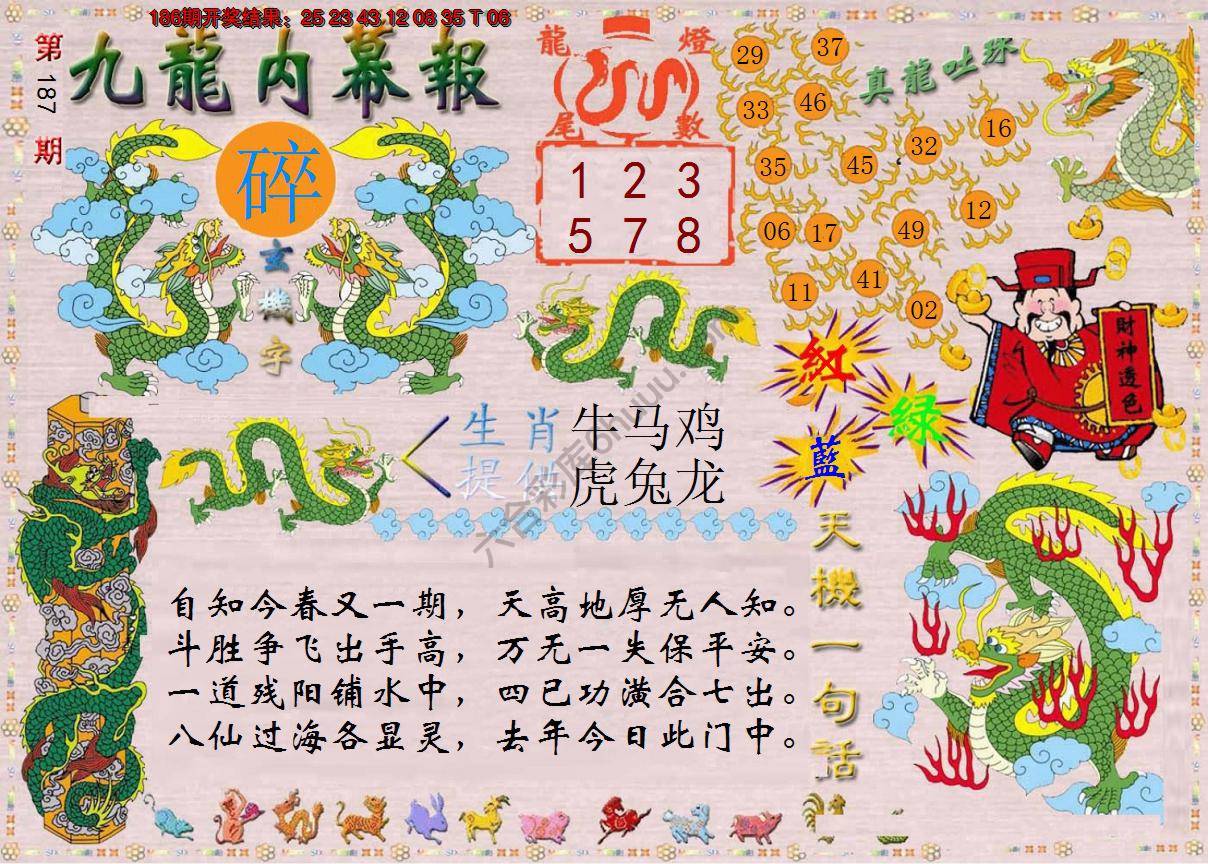 186期开奖结果：25 23 43 12 08 35 T 06
第187期
九龍内幕報
碎
玄機字
龍燈尾數
1 2 3
5 7 8
真龍吐珠
29 37
33 46
35 45 32 16
06 17 49 12
11 41 02
財神透色
紅
綠
藍
生肖 牛马鸡
提供 虎兔龙
天機一句話
自知今春又一期，天高地厚无人知。
斗胜争飞出手高，万无一失保平安。
一道残阳铺水中，四已功潢合七出。
八仙过海各显灵，去年今日此门中。